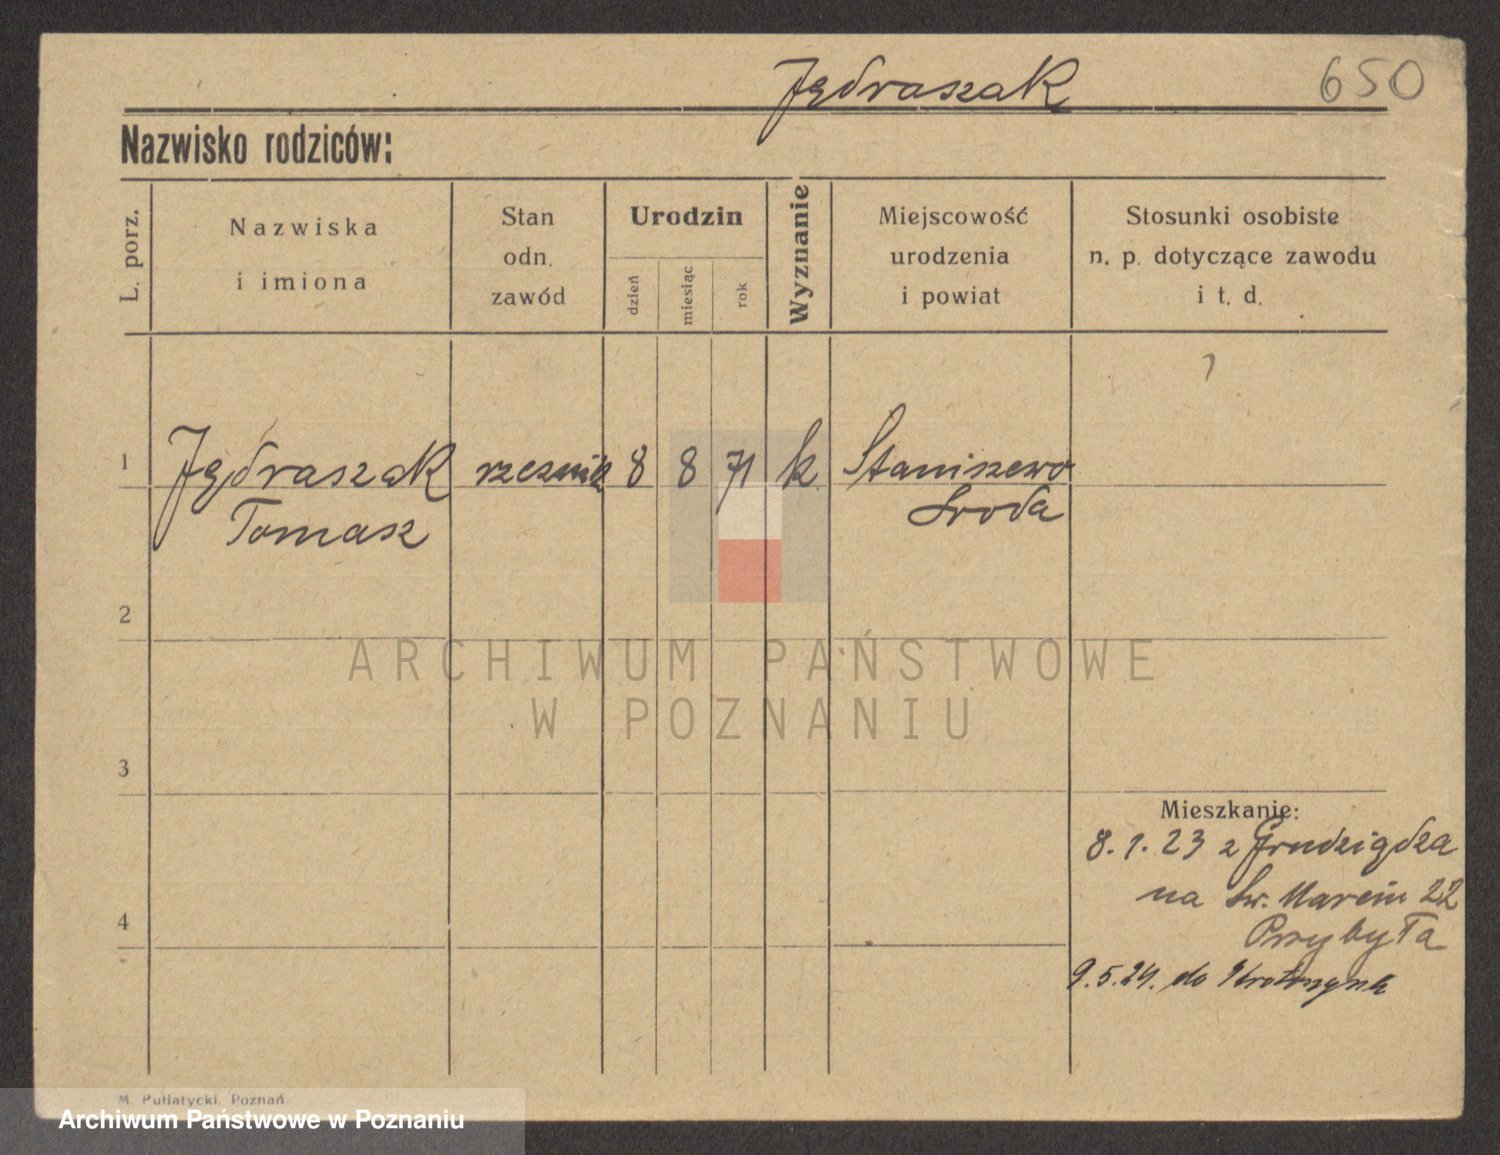 Jędraszak 650
Nazwisko rodziców:
L. porz.
Nazwiska
i imiona
Stan
odn.
zawód
Urodzin
dzień
miesiąc
rok
Wyznanie
Miejscowość
urodzenia
i powiat
Stosunki osobiste
n. p. dotyczące zawodu
i t. d.
1 Jędraszak rzeźnik 8 8 71 k Staniszewo
Tomasz Środa
2
ARCHIWUM PAŃSTWOWE
W POZNANIU
3
Mieszkanie:
8.1.23 z Grudziądza
na Św. Marcin 22
4
Przybyła
9.5.24. do Krotoszyna
M. Putiatycki, Poznań
Archiwum Państwowe w Poznaniu